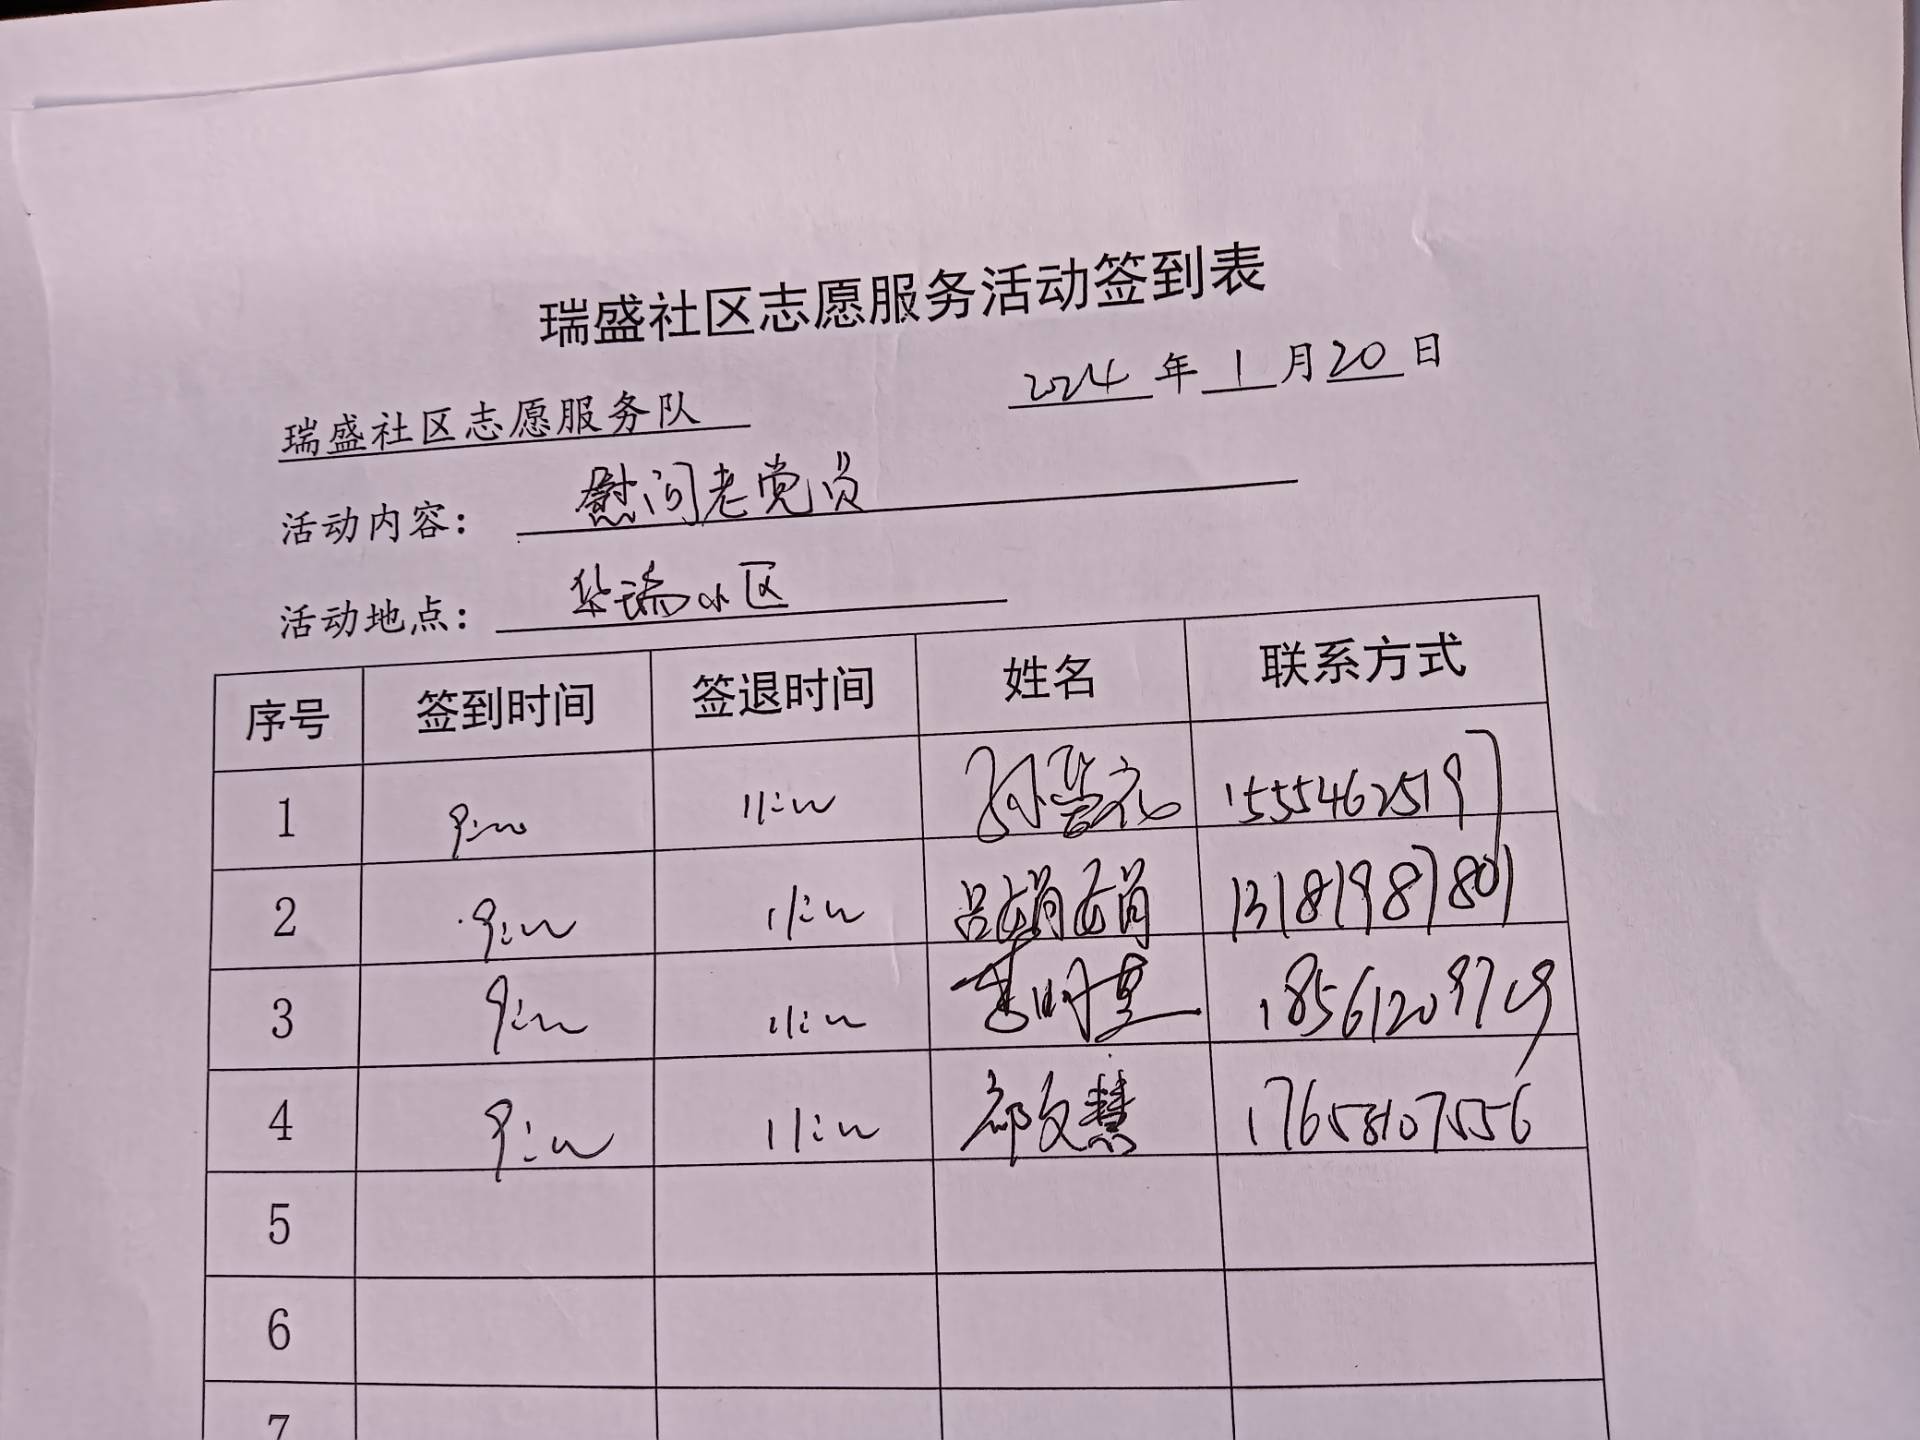 瑞盛社区志愿服务活动签到表
2024 年 1 月 20 日
瑞盛社区志愿服务队
活动内容: 慰问老党员
活动地点: 华瑞小区
序号 签到时间 签退时间 姓名 联系方式
1 9:00 11:00 15554625197
2 9:00 11:00 吕娟娟 13181987801
3 9:00 11:00 18561209709
4 9:00 11:00 文慧 17658107556
5
6
7